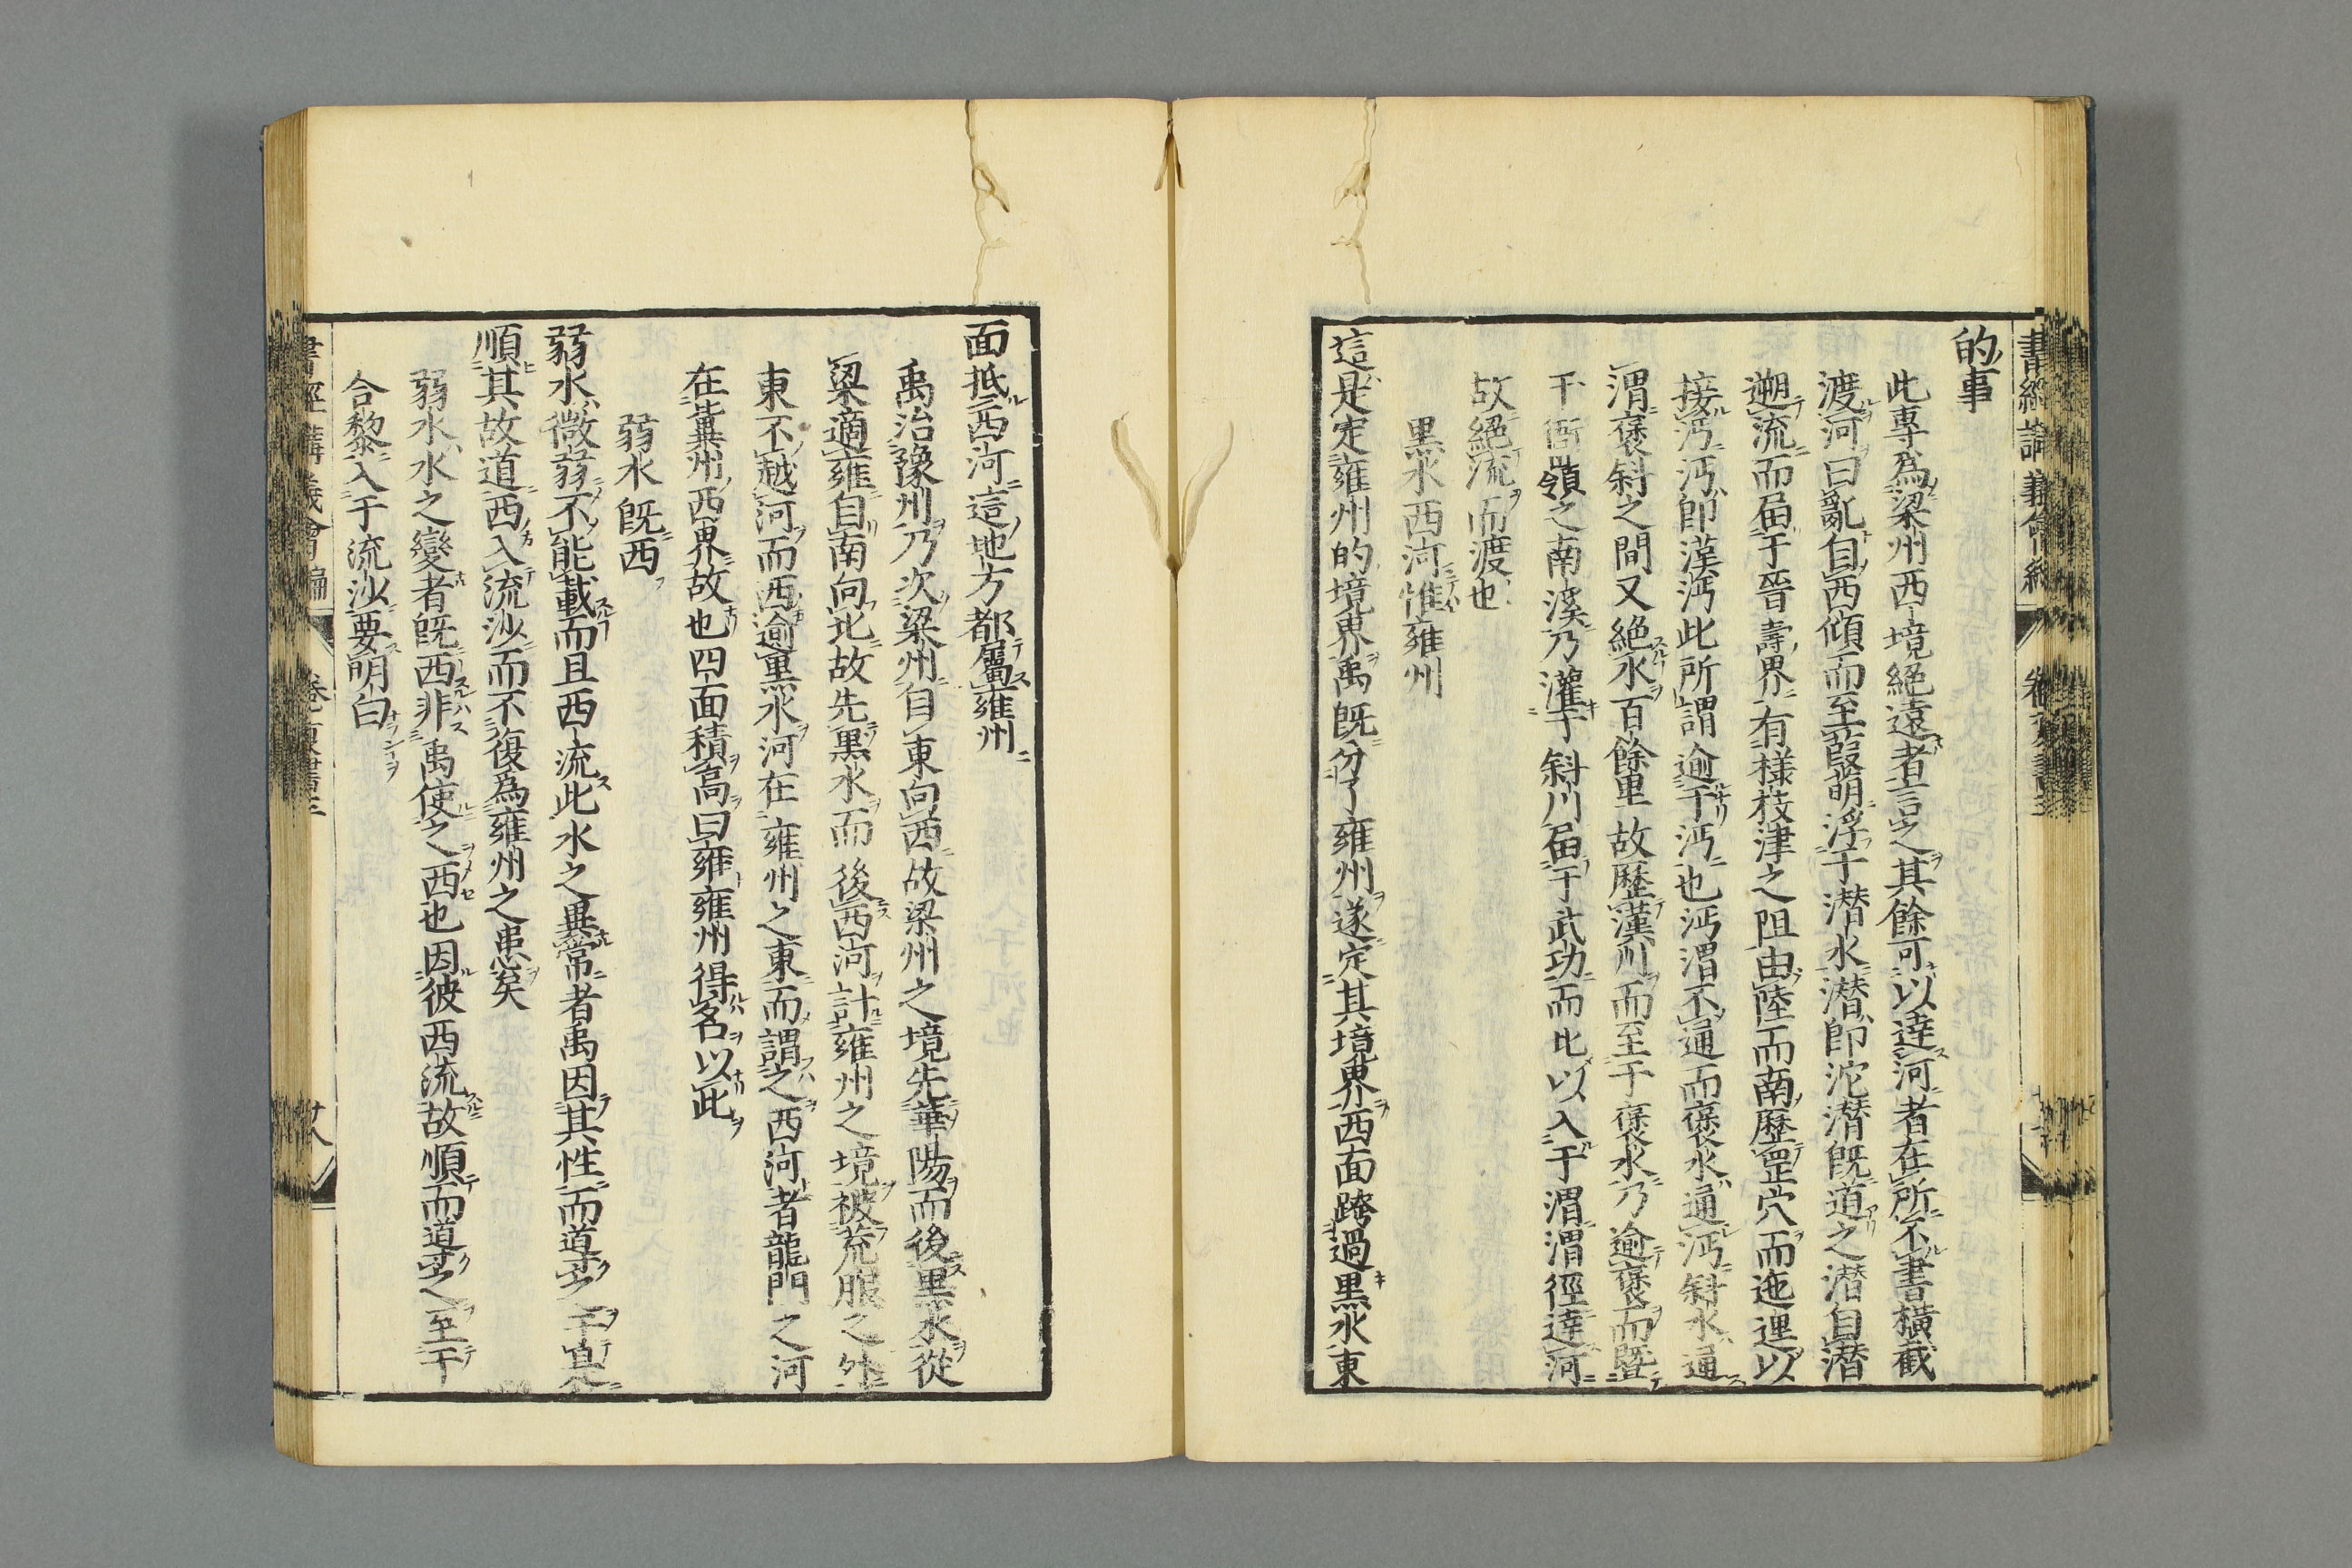 的事
此專為梁州西境絕遠者言之其餘可以達河者在所不書橫截
渡河曰亂自西傾而至葭萌浮于潛水潛即沱潛既道之潛自潛
遡流而屆于晉壽界有樣枝津之阻由陸而南歷罡穴而迤邐以
接沔沔即漢沔此所謂逾于沔也沔渭不通而褒水通沔斜水通
渭褒斜之間又絕水百餘里故歷漢川而至于褒水乃逾褒而暨
于衙嶺之南溪乃灌于斜川屆于武功而北以入于渭渭徑達河
故絕流而渡也
黑水西河惟雍州
這是定雍州的境界禹既分了雍州遂定其境界西面跨過黑水東
面抵西河這地方都屬雍州
禹治豫州乃次梁州自東向西故梁州之境先華陽而後黑水從
梁適雍自南向北故先黑水而後西河計雍州之境被荒服之外
東不越河而西逾黑水河在雍州之東而謂之西河者龍門之河
在冀州西界故也四面積高曰雍雍州得名以此
弱水既西
弱水微弱不能載而且西流此水之異常者禹因其性而道之
順其故道西入流沙而不復為雍州之患矣
弱水水之變者既西非禹使之西也因彼西流故順而道之至于
合黎入于流沙要明白
書經講義會編